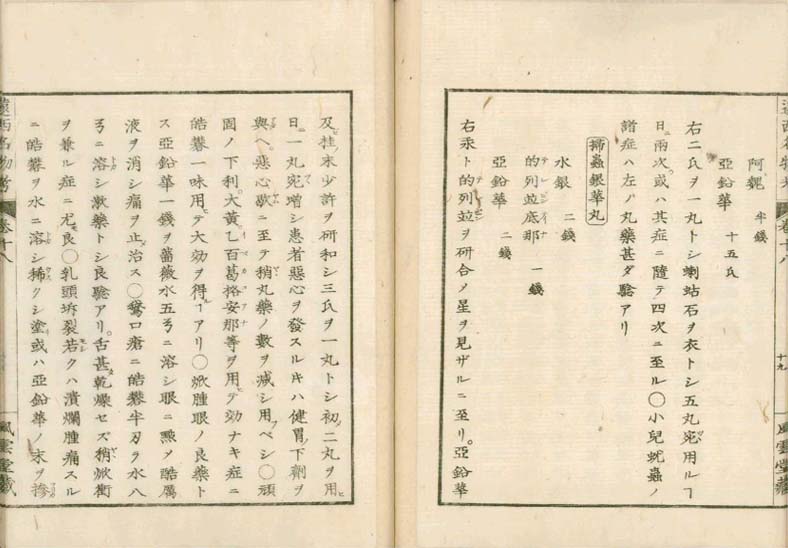 遠西名物考 卷十八
十九
風雲堂藏
阿魏 半錢
亞鉛華 十五氏
右二氏ヲ一丸トシ蝲蛄石ヲ衣トシ五丸宛用ルヿ
日ニ兩次或ハ其症ニ隨テ四次ニ至ル〇小兒蚘蟲ノ
諸症ハ左ノ丸藥甚ダ驗アリ
掃蟲銀華丸
水銀 二錢
的列並底那 一錢
テレビンテイナ
亞鉛華 二錢
右汞ト的列並ヲ研合メ星ヲ見ザルニ至リ。亞鉛華
及桂末少許ヲ研和シ三氏ヲ一丸トシ初二丸ヲ用ヒ
日ニ一丸宛增シ患者惡心ヲ發スルキハ健胃ノ下劑ヲ
與ヘ。惡心歇ニ至テ稍丸藥ノ數ヲ減シ用ベシ〇頑
固ノ下利。大黃乙百葛格安那等ヲ用テ效ナキ症ニ
皓礬一味用テ大効ヲ得ルヿアリ〇焮腫眼ノ良藥ト
ス亞鉛華一錢ヲ薔薇水五弓ニ溶シ眼ニ㸃メ酷厲
液ヲ消シ痛ヲ止治ス〇鵞口瘡ニ皓礬半刄ヲ水八
弓ニ溶シ漱藥トシ良驗アリ。舌甚乾燥セズ稍焮衝
ヲ兼ル症ニ尤良〇乳頭坼裂若クハ潰爛腫痛スル
ニ皓礬ヲ水ニ溶シ稀クシ塗或ハ亞鉛華ノ末ヲ摻
遠西名物考 卷十八
風雲堂藏